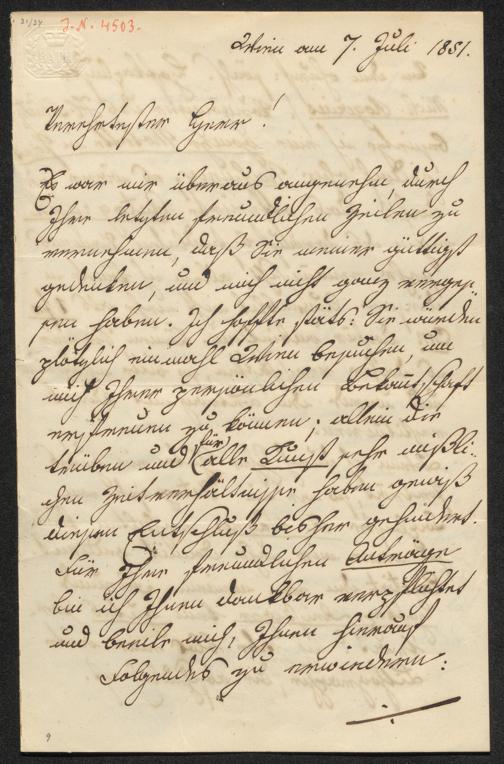 21/24
J.-N. 4503.
Wien am 7. Juli 1851.
Verehrtester Herr!
Es war mir überaus angenehm, durch
Ihre letzten freundlichen Zeilen zu
vernehmen, daß Sie meiner gütigst
gedenken, und mich nicht ganz verges-
sen haben. Ich hoffte stäts: Sie würden
plötzlich einmahl Wien besuchen, um
mich Ihrer persönlichen Bekanntschaft
erfreuen zu können; allein die
trüben und für alle Kunst sehr mißli-
chen Zeitverhältnisse haben gewiß
diesen Entschluß bisher gehindert.
Für Ihre freundlichen Anträge
bin ich Ihnen dankbar verpflichtet
und beeile mich, Ihnen hierauf
Folgendes zu erwiedern:
9